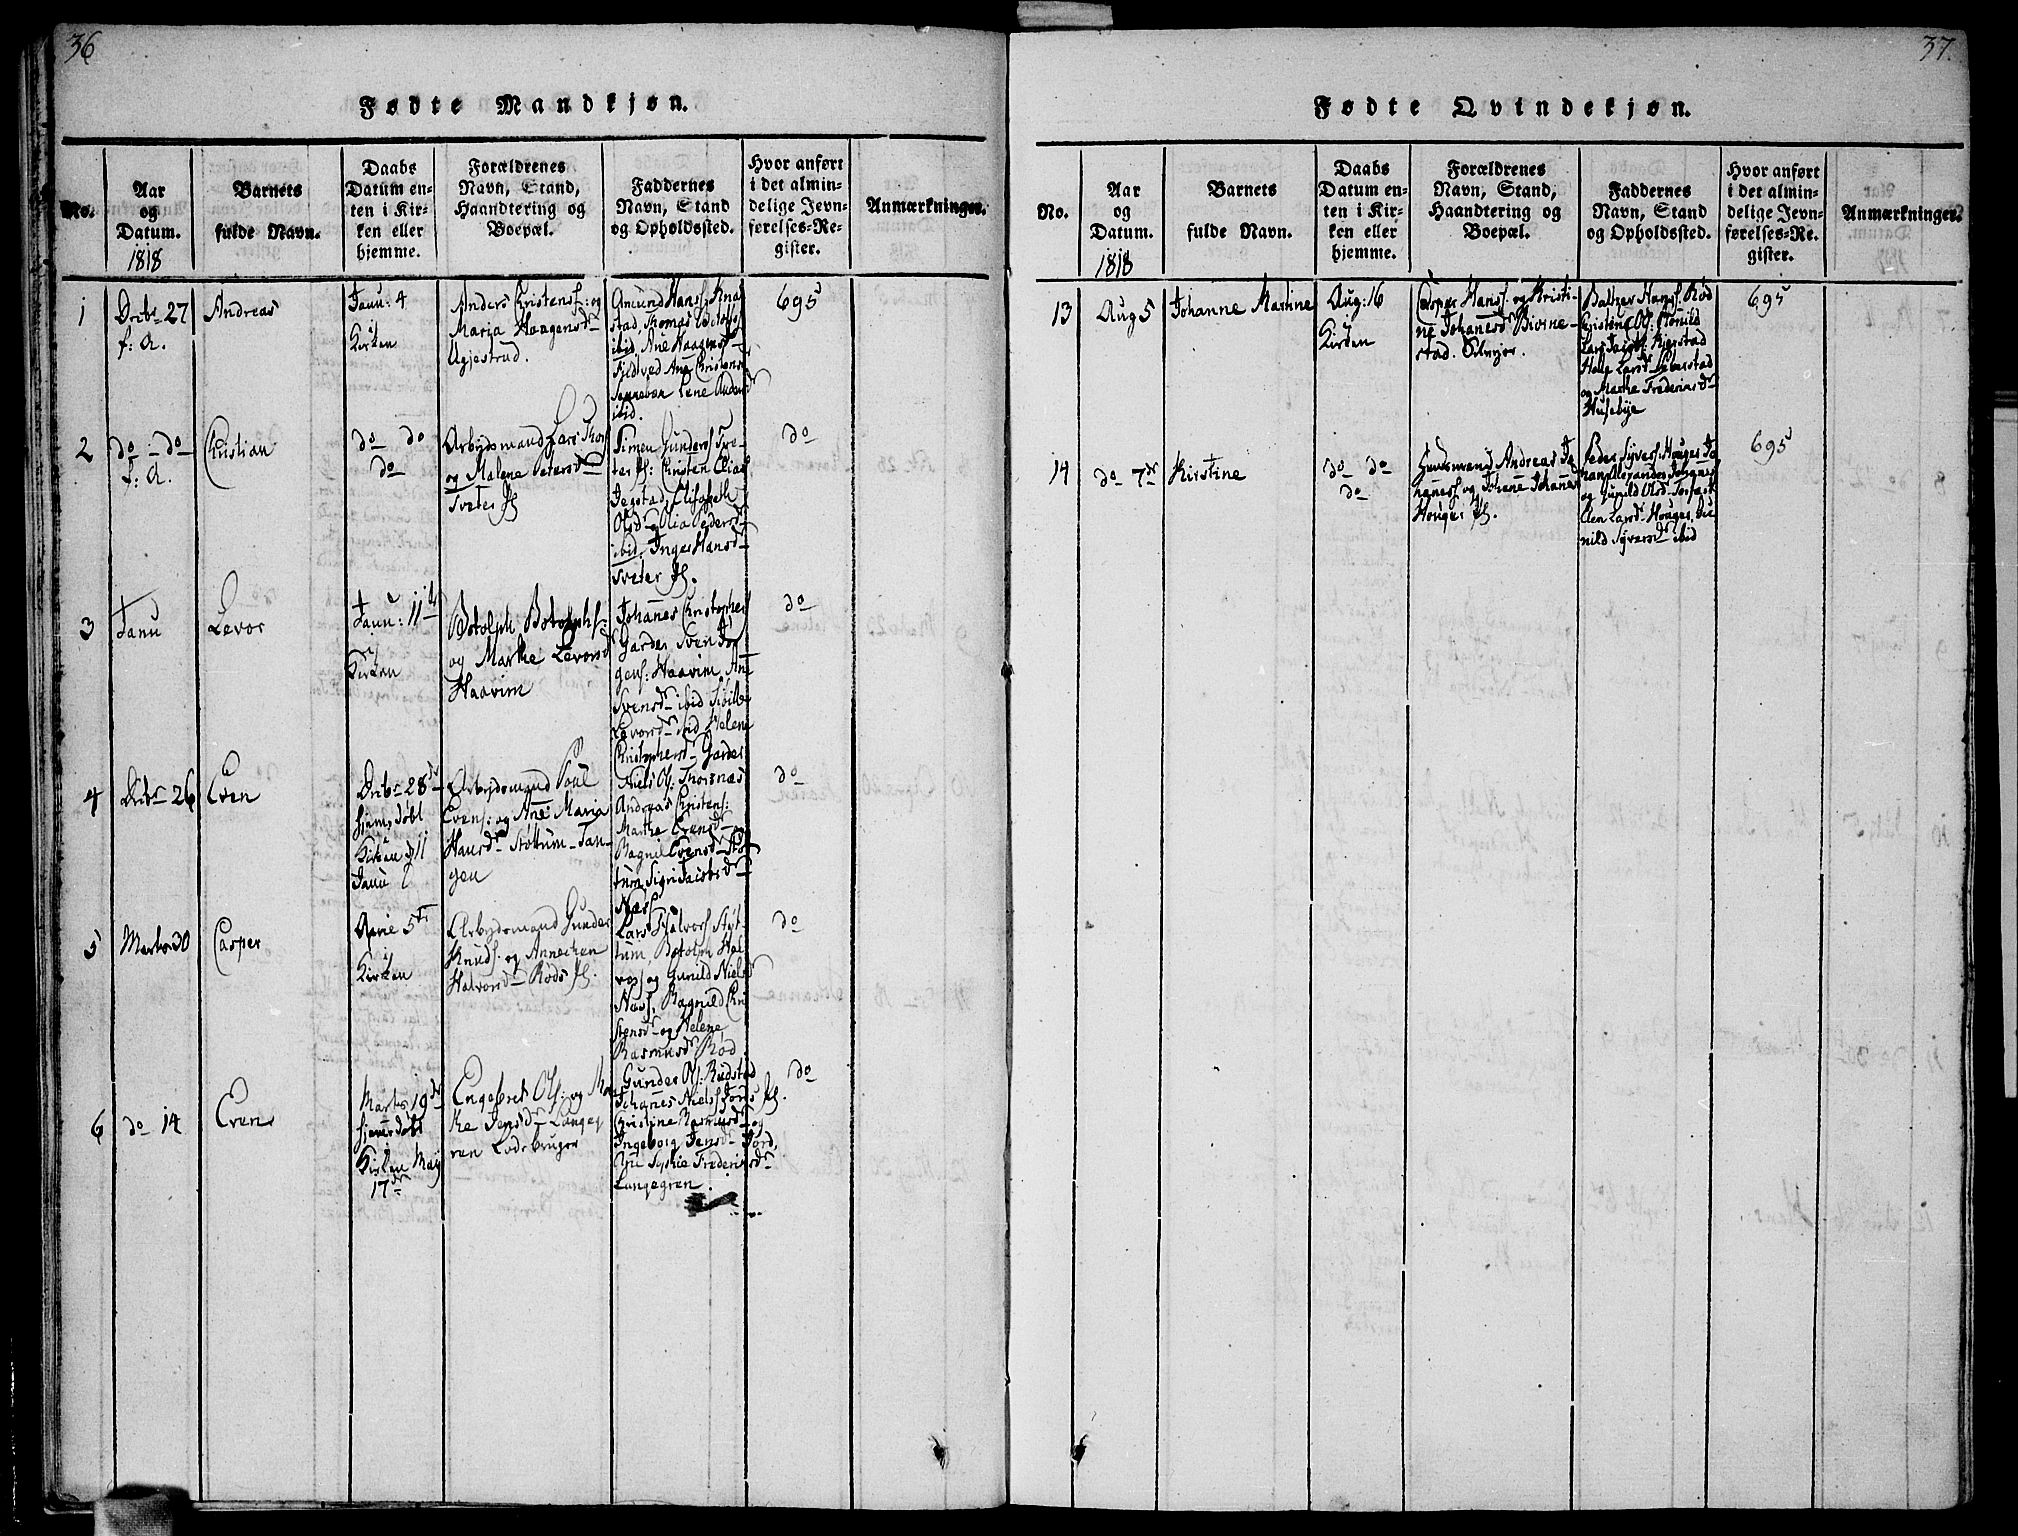 36
Fødte Mandkjøn.
No.
Aar
og
Datum.
1818
Barnets
fulde Navn.
Daabs
Datum en-
ten i Kir-
ken eller
hjemme.
Forældrenes
Navn, Stand,
Haandtering og
Boepæl.
Faddernes
Navn, Stand
og Opholdssted.
Hvor anført
i det almin-
delige Jevn-
førelses-Re-
gister.
Anmærkninger.
1
Decbr 27
f: A.
Andreas
Janu: 4
Kirken
Anders Christens: og
Maria Haagensdr
Amund Hans:
stad, Thomas
ibid, Ane Haagensdr
Ane Christens
Lene
ibid.
695
2
do - do
f: A.
Christian
do do
do
Arbeydsmand Lars
og Malene Petersdr
Tveter
Simen Gunders: Tve-
ter Christen Elias
Jegstad, Elisabeth
Olsdr Olia Pedersdr
ibid. Inger Hansdr
Tveter
do
3
Janu
Levor
Janu: 11te
Kirken
Botolph Botolphs:
og Marthe Levorsdr
Haavim
Johanes Christophers
Garder Sven Jør
gens: Haavim, Ane
Svensdr ibid
Levorsdr ibid Helene
Christophersdr Garder
do
4
Decbr 26
Even
Decbr 28de
hjemdøbt
Kirken d 11
Janu
Arbeydsmand Poul
Evens: og Ane Maria
Hansdr Støttum-Tan-
gen
Niels Ols: Thorsnæs
Andreas Christens:
Marthe Evensdr
Ragnil Evensdr Støt
tum, Sigri Jacobsdr
Næss
do
5
Marts 30
Casper
5te
Kirken
Arbeydsmand Gunder
Knuds: og Annechen
Halvorsdr Røds
Lars Halvors Støt-
tum, Botolph Hal
vors og Gunild Nielsdr
Næss, Ragnild Chri
stensdr og Helene
Rasmusdr Rød
do
6
do 14
Even
Marts 19de
hjemdøbt
Kirken May
17de
Engebret Ols: og Mar
the Jensdr Langeg
ren
Gunder Ols: Rudstad
Johanes Niels: Jord
Christine Rasmusdr og
Ingeborg Jensdr Jord,
Ane Sophie Frederiksdr
Langegren.
do
37.
Fødte Qvindekjøn.
No.
Aar
og
Datum.
1818
Barnets
fulde Navn.
Daabs
Datum en-
ten i Kir-
ken eller
hjemme.
Forældrenes
Navn, Stand,
Haandtering og
Boepæl.
Faddernes
Navn, Stand
og Opholdssted.
Hvor anført
i det almin-
delige Jevn-
førelses-Re-
gister.
Anmærkninger.
13
Aug 5
Johanne Martine
Aug: 16
Kirken
Casper Hans: og Kristi-
ne Johanesdr Biørne-
stad. Selveyer.
Baltzer Hans: Rød
Kristine Ols:
Lars Jacobs:
Helge Larsdr
og Marthe Frederiksdr
Husebye
695
14
do 7de
Kirstine
do do
do
Huusmand Andreas Jo
hanes: og Johane Johanes
Houger
Peder Syvers: Houger Jo
han Alexander
og Gunild Olsdr
Elen Larsdr Houger, Gu
nild Syversdr ibid
695